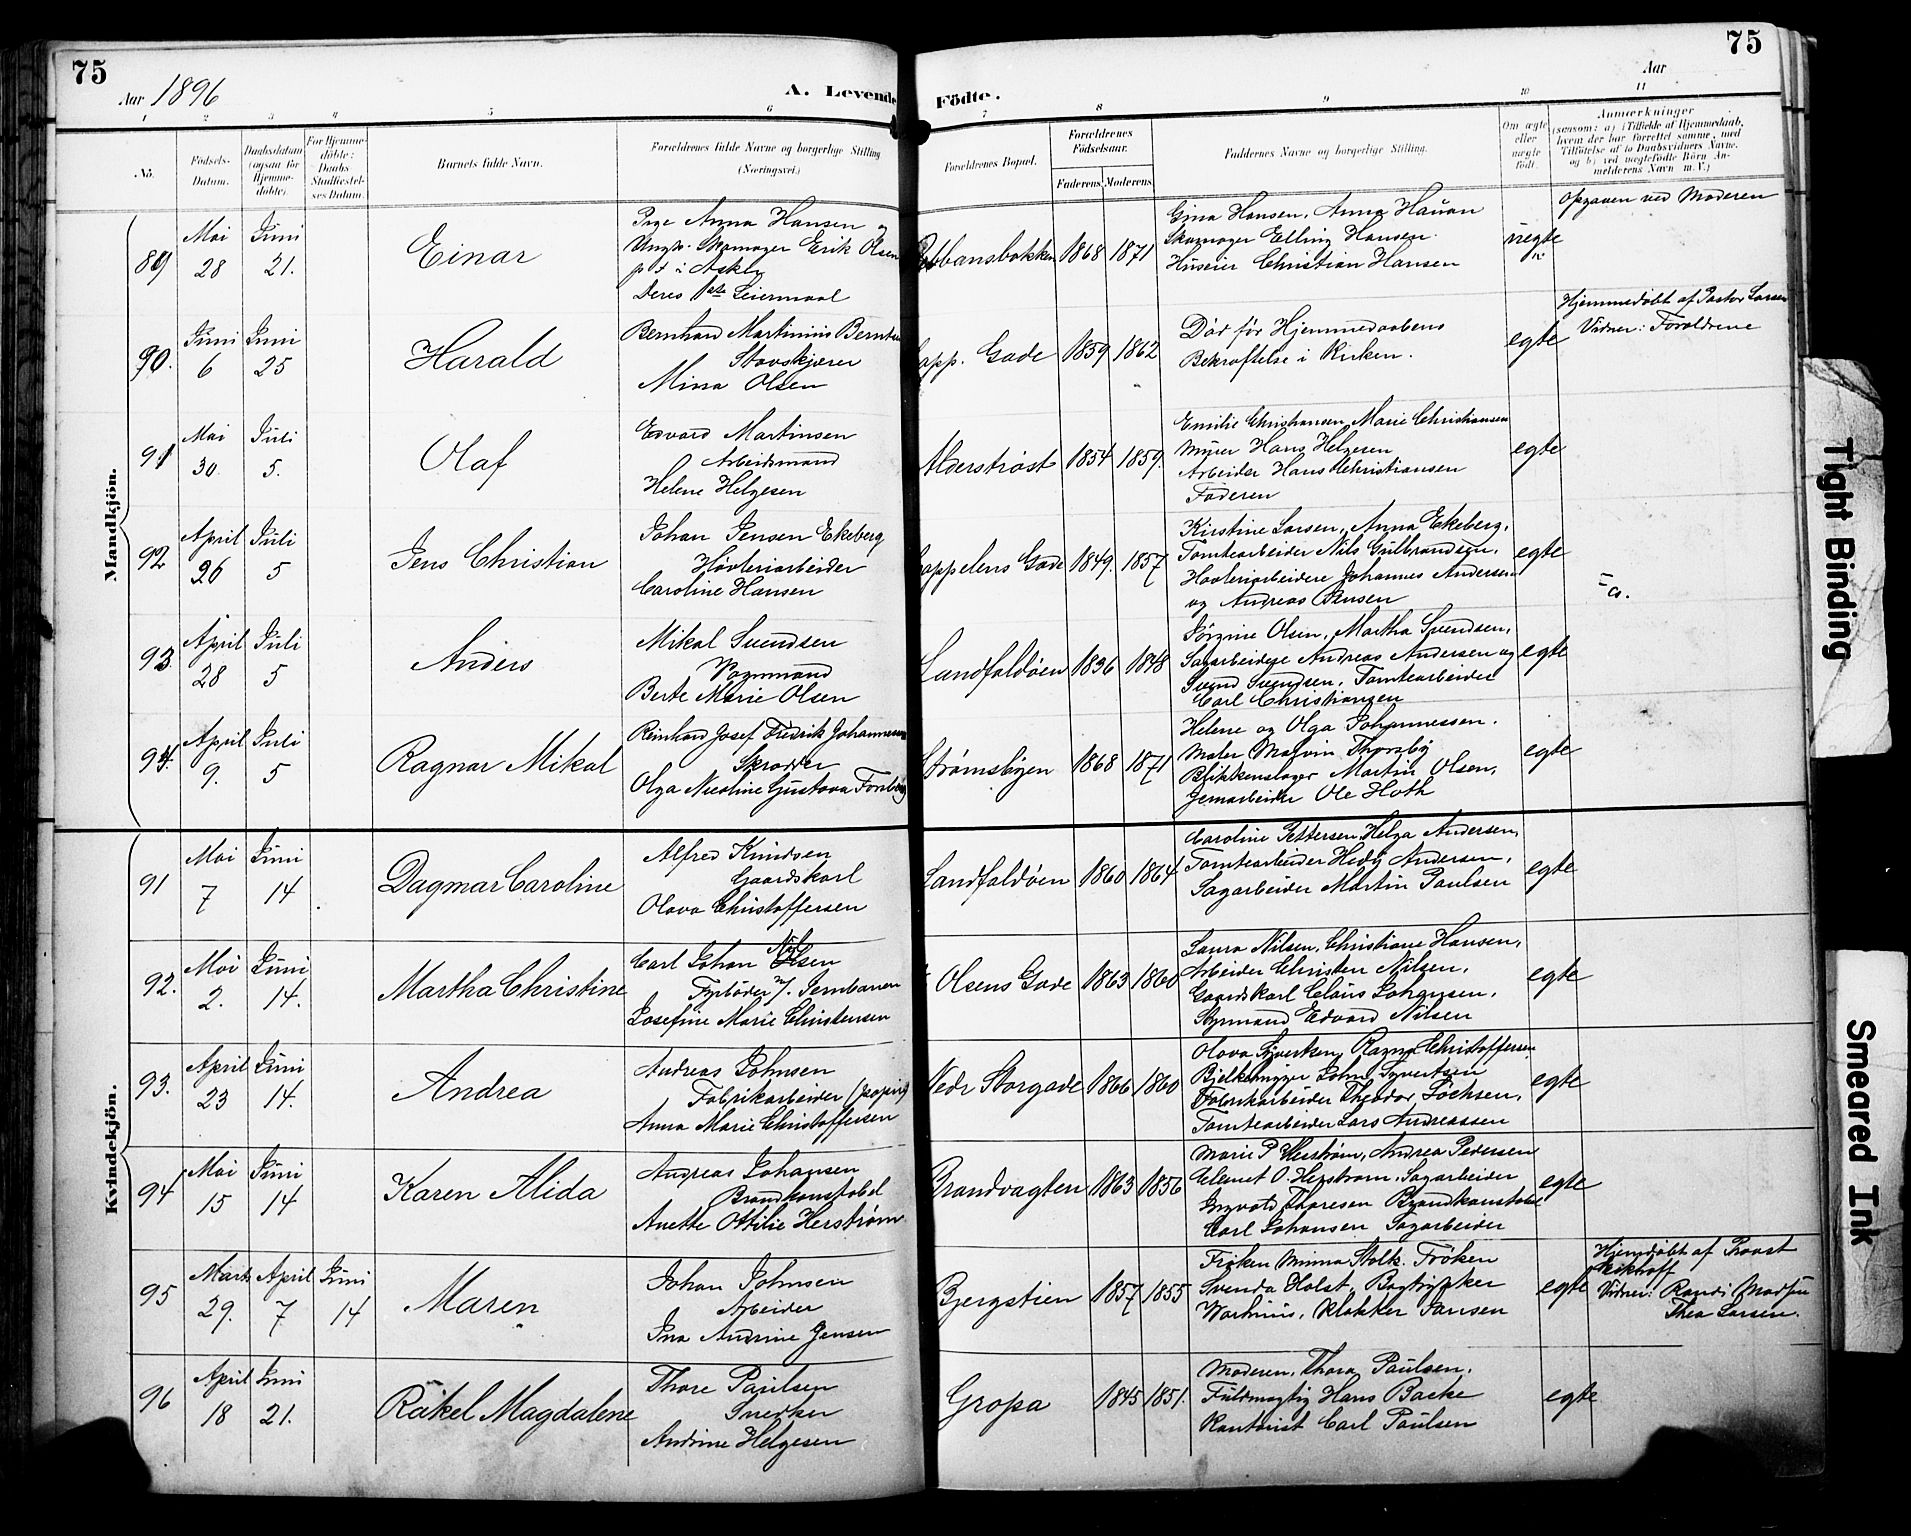 75
75
Aar 1896
A. Levende Födte.
Aar
1 2 3 4 5 6 7 8 9 10 11
No.
Födsels-Datum.
Daabsdatum (ogsaa for Hjemmedöbte).
For Hjemmedöbte: Daabs Stadfæstelses Datum.
Barnets fulde Navn.
Forældrenes fulde Navne og borgerlige Stilling (Næringsvei.)
Forældrenes Bopæl.
Forældrenes Födselsaar.
Faderens Moderens
Faddernes Navne og borgerlige Stilling.
Om ægte eller uægte födt.
Anmærkninger
(saasom: a) i Tilfælde af Hjemmedaab, hvem der har forrettet samme, med Tilföielse af to Daabsvidners Navne. og b) ved uægtefödte Börn Anmelderens Navn m. V.)
Mandkjön.
89 Mai 28 Juni 21. Einar
Pige Anna Hansen og
Ungk. Skomager Erik Olsen
p t i Asker
Deres 1ste Leiermaal
1868 1871
Gina Hansen, Anna Hauan
Skomager Elling Hansen.
Huseier Christian Hansen
uegte
Opgaven ved Moderen
90. Juni 6 Juni 25 Harald
Bernhard Martinius
Mina Olsen
Capp. Gade 1859 1862
Död för Hjemmedaabens
Bekræftelse i Kirken.
egte
Hjemmedöbt af Pastor Larsen
Vidner: Forældrene
91 Mai 30. Juli 5. Olaf
Edvard Martinsen
Arbeidsmand
Helene Helgesen
1854 1859.
Emilie Christiansen, Marie Christiansen
Murer Hans Helgesen
Arbeider Hans Christiansen
Faderen
egte
92 April 26 Juli 5 Jens Christian
Johan Jensen Ekeberg
Hövleriarbeider
Caroline Hansen
Cappelens Gade 1849. 1857
Kirstine Larsen, Anna Ekeberg,
Tomtearbeider Nils Gulbrandsen,
Hövleriarbeidere Johannes Andersen
og Andreas
egte
93. April 28 Juli 5 Anders
Mikal Svendsen
Vognmand
Berte Marie Olsen
Landfaldöen 1836 1848
Jörgine Olsen, Martha Svendsen,
Sagarbeidere Andreas Andersen og
Svend Svendsen, Tomtearbeider
Carl Christiansen
egte
94. April 9. Juli 5 Ragnar Mikal
Reinhard Josef Fredrik Johannessen
Skrædder
Olga Nicoline Gustava
Strömsbyen 1868 1871
Helene og Olga Johannessen.
Maler Thorsby
Blikkenslager Martin Olsen,
Jernarbeider Ole Hoth
egte
Kvindekjön.
91 Mai 7 Juni 14 Dagmar Caroline
Alfred Knudsen
Gaardskarl
Olava Christoffersen
Landfaldöen 1860 1864
Caroline Pettersen, Helga Andersen,
Tomtearbeider Andersen,
Sagarbeider Martin Paulsen
egte
92. Mai 2. Juni 14. Martha Christine
Carl Johan Nilsen
Fyrböder v/. Jernbanen
Josefine Marie Christensen
Olsens Gade 1863 1860
Laura Nilsen, Christiane Hansen,
Arbeider Christen Nilsen,
Gaardskarl Claus Johansen,
Styrmand Edvard Nilsen
egte
93. April 23 Juni 14. Andrea
Andreas Johnsen
Fabrikarbeider (papir)
Anna Marie Christoffersen
Nedr Storgade 1866 1860
Olava Syvertsen, Ragna Christoffersen
Bjelkehugger John Syvertsen
Fabrikarbeider Theodor
Tomtearbeider Lars Andreassen
egte
94 Mai 15 Juni 14 Karen Alida
Andreas Johansen
Brandkonstabel
Anette Ottilie Herström
Brandvagten 1863 1856
Marie P Herström, Andrea Pedersen
Clemet O. Herström, Sagarbeider
Ingvald Thoresen Brandkonstabel
Carl Johansen Sagarbeider
egte
95 Marts 29. April 7 Juni 14 Maren
Johan Johnsen
Arbeider
Ina Andrine Jensen
Bjergstien 1857 1855
Fröken Minna Stolt. Fröken
Svenda Holst, Bogtrykker
Klokker Jansen
egte
Hjemdöbt af Provst
Vidner: Randi Madsen
Thea Larsen.
96 April 18 Juni 21. Rakel Magdalene
Thore Paulsen
Snedker
Andrine Helgesen
Gropa 1845 1851.
Moderen, Thora Paulsen,
Fuldmægtig Hans Backe
Kontorist Carl Paulsen
egte
Tight Binding
Smeared Ink